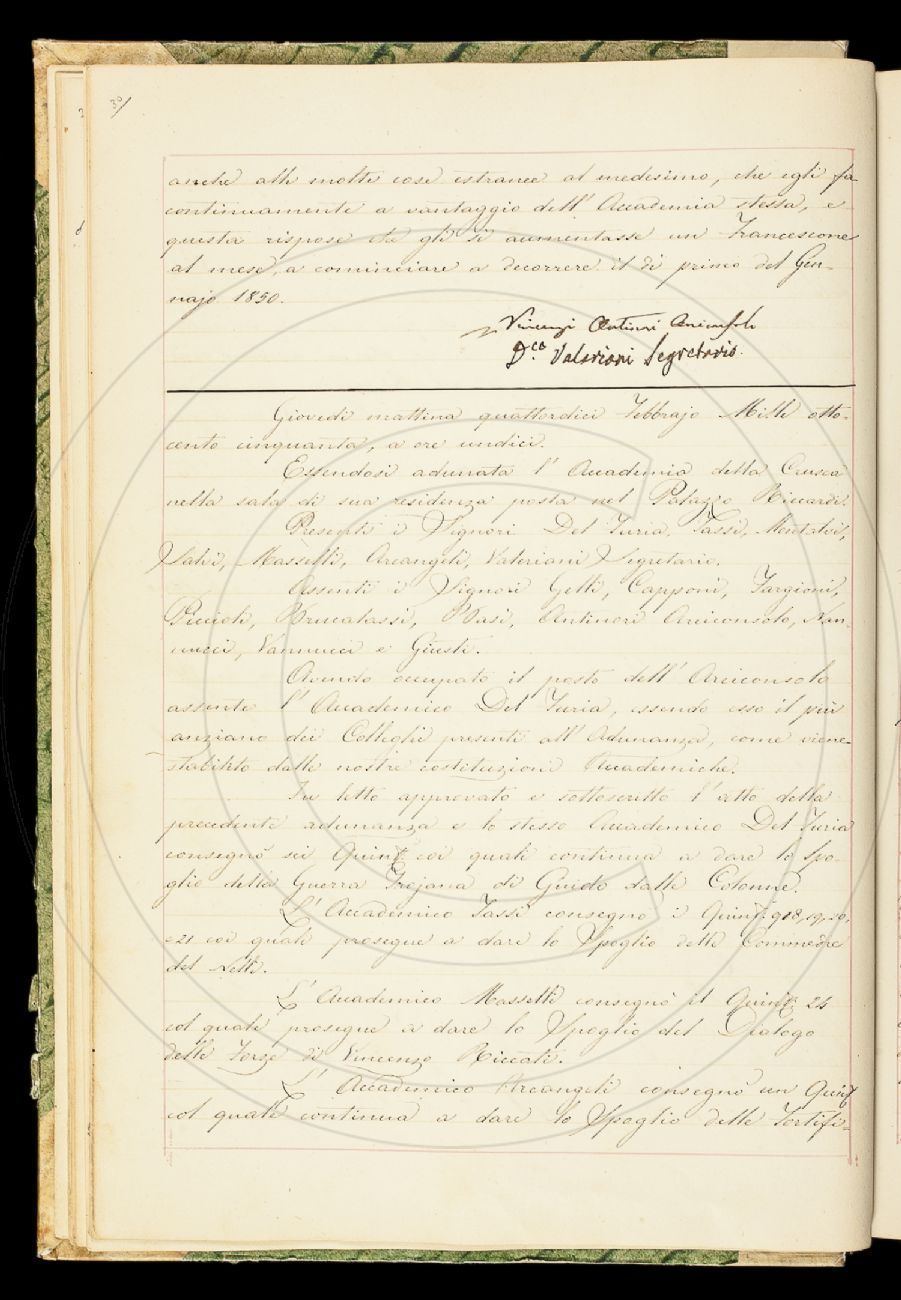 30/
anche alle molte cose estranee al medesimo, che egli fa
continuamente a vantaggio dell' Accademia stessa, e
questa rispose che gli si aumentasse un Francescone
al mese, a cominciare a decorrere il dì primo del Gen-
najo 1850.
Vincenzio Antinori Arciconsolo
D.co Valeriani Segretario.
Giovedì mattina quattordici Febbrajo Mille otto-
cento cinquanta, a ore undici.
Essendosi adunata l' Accademia della Crusca
nella sala di sua residenza posta nel Palazzo Riccardi.
Presenti i Signori Del Furia, Tassi, Montalvi,
Salvi, Masselli, Arcangeli, Valeriani Segretario.
Assenti i Signori Gelli, Capponi, Targioni,
Puccioli, Brucalassi, Basi, Antinori Arciconsolo, Nan-
nucci, Vannucci e Giusti.
Avendo occupato il posto dell' Arciconsolo
assente l' Accademico Del Furia, essendo esso il più
anziano dei Colleghi presenti all' Adunanza, come viene
stabilito dalle nostre costituzioni Accademiche.
Fu letto approvato e sottoscritto l' atto della
precedente adunanza e lo stesso Accademico Del Furia
consegnò sei Quint. coi quali continua a dare lo Spo-
glio della Guerra Trojana di Guido dalle Colonne.
L' Accademico Tassi consegnò i Quint. 918, 19, 20,
e 21 coi quali prosegue a dare lo Spoglio delle Commedie
del Nelli.
L' Accademico Masselli consegnò il Quint. 24
col quale prosegue a dare lo Spoglio del Dialogo
delle Forze di Vincenzo Riccati.
L' Accademico Arcangeli consegnò un Quint.
col quale continua a dare lo Spoglio delle Fortifi-